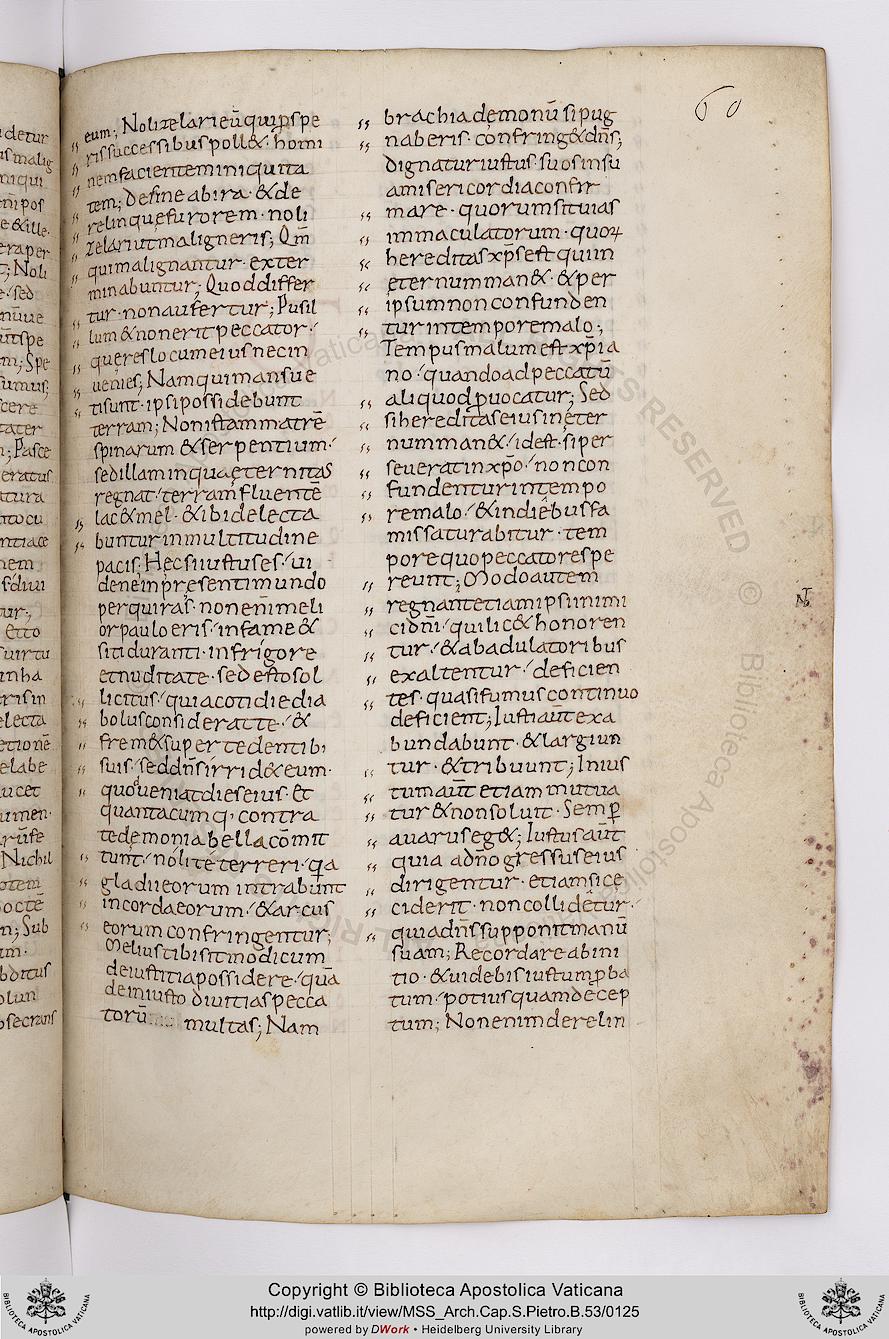 60
eum; Nolizelarieū quiꝓspe
rissuccessibuspoll&· homi
nemfacienteminiquita
tem; Define abira· &de
relinquefurorem· noli
zelariutmaligneris; Qm̄
quimalignantur· exter
minabuntur; Quoddiffer
tur· nonaufertur; Pusil
lum &nonerit peccator·
queres locum eius necin
uenies; Namquimansue
tisunt· ipsipossidebunt
terram; Nonistammatrē
spinarum &serpentium·
sedillaminquaęternitas
regnat· terramfluentē
lac&mel· &ibidelecta
bunturinmultitudine
pacis; Hecsiiustuses· ui
deneinpresentimundo
perquiras· nonenīmeli
orpauloeris· infame&
sitiduranti· infrigore
etnuditate· sedestosol
licitus· quiacotidiedia
bolusconsideratte· &
frem&supertedentibi
suis· seddn̄sirrid&eum·
quoueniatdieseius· et
quantacumq· contra
tedemoniabellacōmit
tunt· noliteterreri· qa
gladiieorum intrabunt
incordaeorum· &arcus
eorum confringentur;
Meliustibisitmodicum
deiustitiapossidere· quā
deiniusto diuitiaspecca
torū multas; Nam
brachiademonū sipug
naberis· confring&dn̄s;
dignaturiustus· suosinsu
amisericordiaconfir
mare· quorumsituias
immaculatorum· quoꝝ
hereditasxp̄sestquiin
eternumman&· &per
ipsumnonconfunden
turintemporemalo;
Tempusmalumestxp̄ia
no· quandoadpeccatū
aliquodꝓuocatur; Sed
sihereditaseiusinęter
numman&· idest· siper
seueratinxp̄o· noncon
fundenturintempo
remalo· &indiebusfa
missaturabitur· tem
porequopeccatorespe
reunt; Modoautem
regnantetiamipsiinimi
cidn̄i· quilic&honoren
tur· &abadulatoribus
exaltentur· deficien
tes· quasifumuscontinuo
deficient; Iustiaūtexa
bundabunt· &largiun
tur· &tribuunt; Inius
tumaūt etiammutua
tur&nonsoluit· Semꝑ
auaruseg&; Iustusaūt
quia adn̄ogressuseius
dirigentur· etiamsice
ciderit· noncollidetur·
quiadn̄ssupponitmanū
suam; Recordareabini
tio· &uidebisiustumꝓba
tum· potiusquamdecep
tum; Nonenimderelin
Copyright © Biblioteca Apostolica Vaticana
http://digi.vatlib.it/view/MSS_Arch.Cap.S.Pietro.B.53/0125
powered by DWork • Heidelberg University Library
BIBLIOTECA APOSTOLICA VATICANA
BIBLIOTECA APOSTOLICA VATICANA